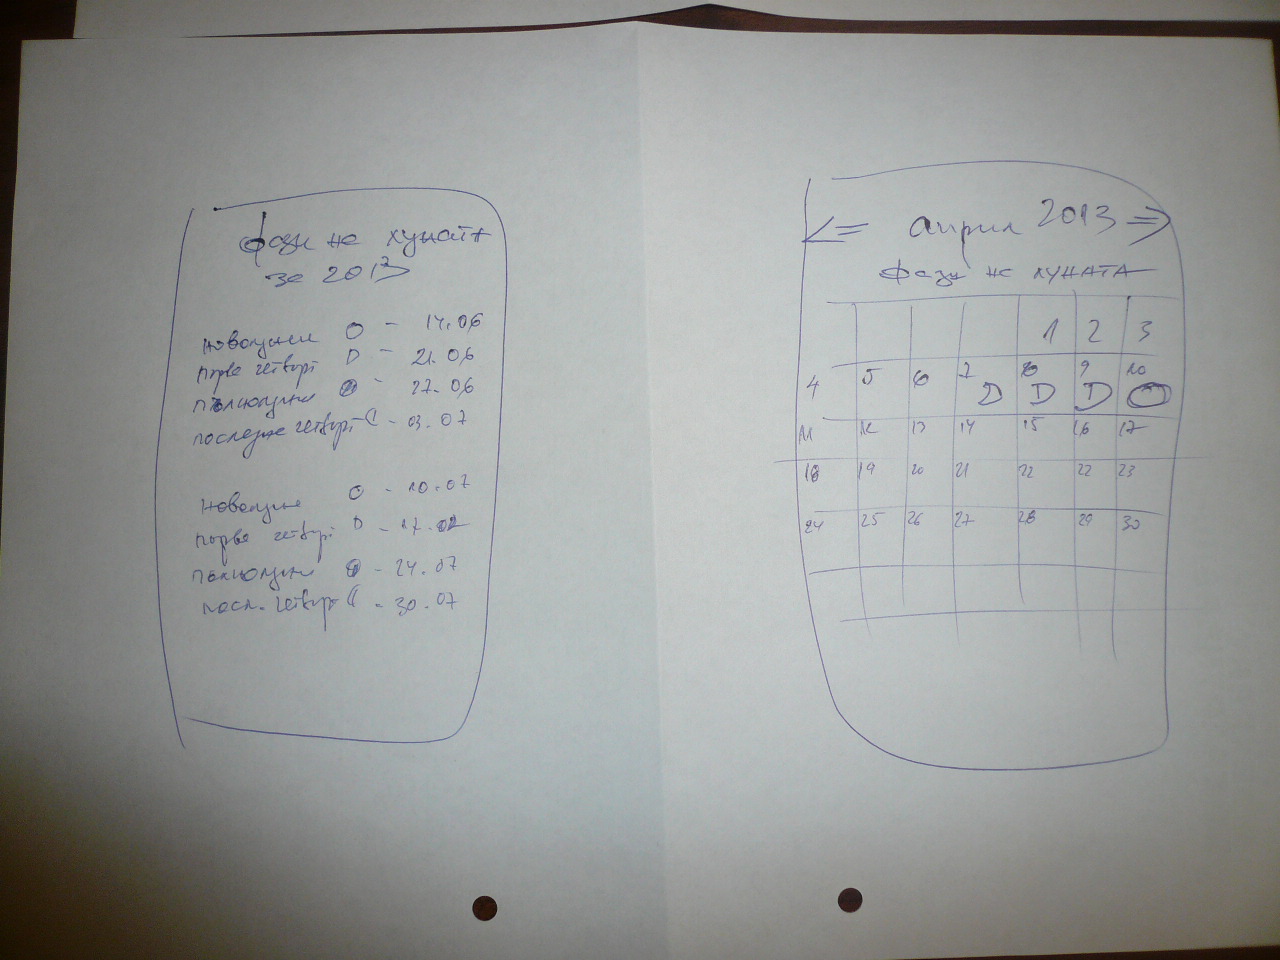 фази на луната
за 2013
новолуние О - 14.06
първа четвърт D - 21.06
пълнолуние - 27.06
последна четвърт ( - 03.07
новолуние О - 10.07
първа четвърт D - 17.07
пълнолуние - 24.07
посл. четвърт ( - 30.07
<= април 2013 =>
фази на луната
1 2 3
4 5 6 7 8 9 10
D D D О
11 12 13 14 15 16 17
18 19 20 21 22 22 23
24 25 26 27 28 29 30